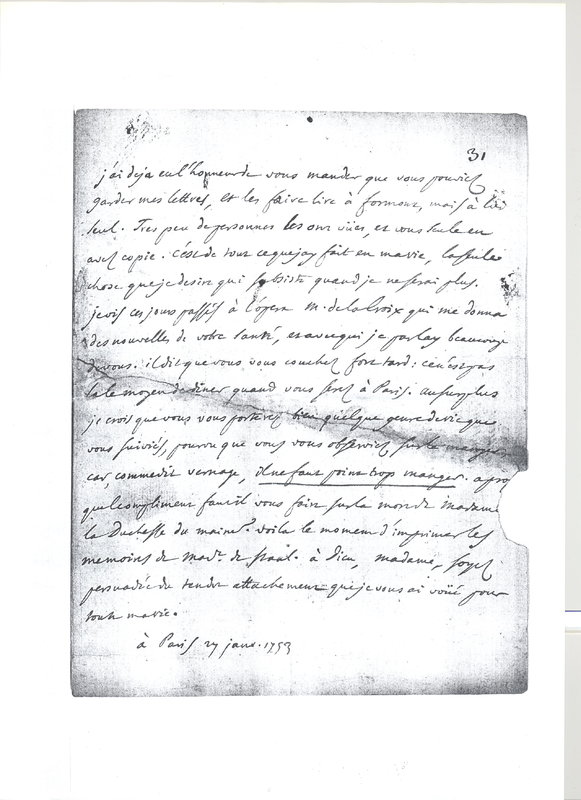 31
j'ai deja eu l'honneur de vous mander que vous pouviez
garder mes lettres, et les faire lire à formont, mais à lui
seul. Tres peu de personnes les ont vües, et vous seule en
avez copie. c'est de tout ce que j'ay fait en ma vie, la seule
chose que je desire qui subsiste quand je ne serai plus.
je vis ces jours passés à l'opera M. de la Croix qui me donna
des nouvelles de votre santé, et avec qui je parlay beaucoup
de vous. il dit que vous vous couchez fort tard: ce n'est pas
la le moyen de diner quand vous serez à Paris. au surplus
je crois que vous vous porterez bien quelque genre de vie que
vous suiviés, pourvu que vous vous observiez sur le manger
car, comme dit vernage, il ne faut point trop manger. a propos
quel compliment faut il vous faire sur la mort de Madame
la Duchesse du maine? voila le moment d'imprimer les
memoires de Mad. de staal. à Dieu, madame, soyez
persuadée du tendre attachement que je vous ai voüé pour
toute ma vie.
à Paris 27 janv. 1753